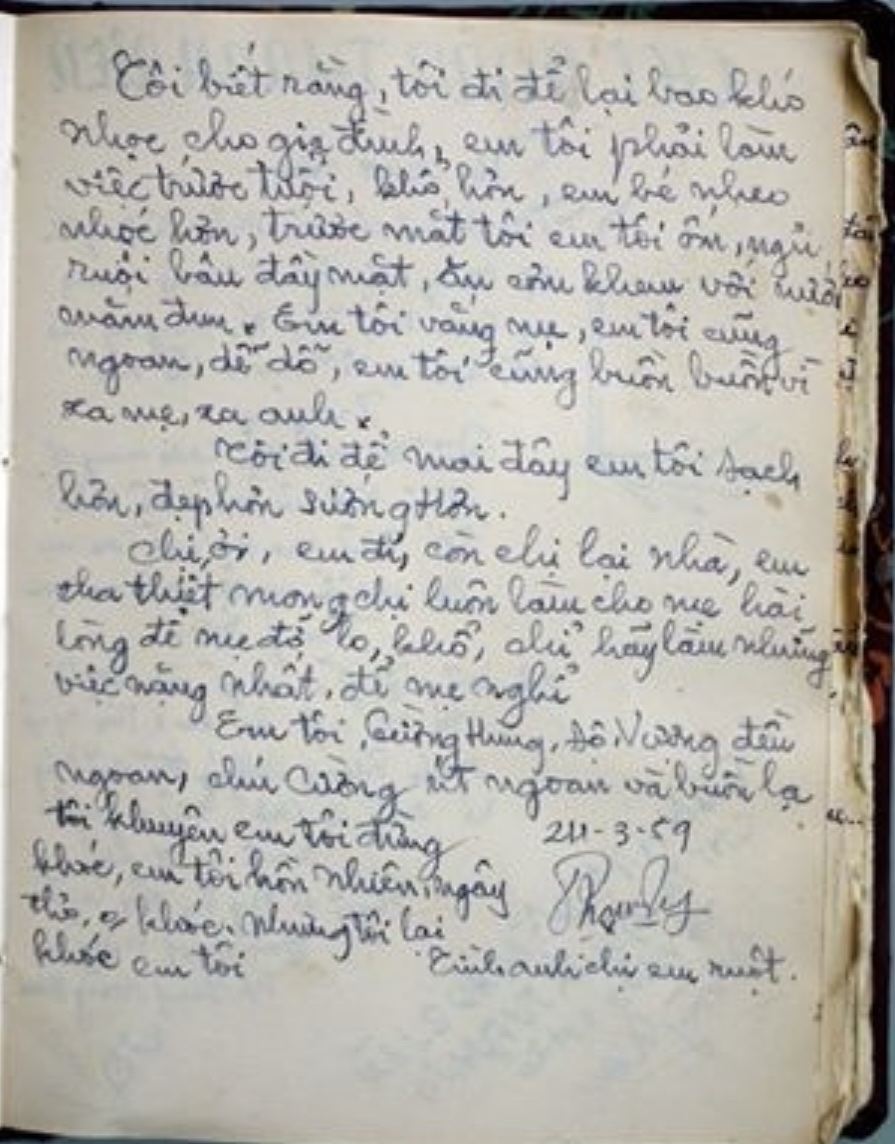 Tôi biết rằng, tôi đi để lại bao khó
nhọc cho gia đình, em tôi phải làm
việc trước tuổi, khổ hơn, em bé nheo
nhóc hơn, trước mắt tôi em tôi ốm, ngủ
ruồi bâu đầy mặt, ăn cơm khem với nước
mắm đun. Em tôi vắng mẹ, em tôi cũng
ngoan, dễ dỗ, em tôi cũng buồn buồn vì
xa mẹ, xa anh.
Tôi đi để mai đây em tôi sạch
hơn, đẹp hơn sướng Hơn.
Chị ơi, em đi, còn chị lại nhà, em
tha thiết mong chị luôn làm cho mẹ hài
lòng để mẹ đỡ lo, khổ, chị hãy làm những
việc nặng nhất, để mẹ nghỉ
Em tôi, Cường Hùng, Vượng đều
ngoan, chú Cường út ngoan và buồn lạ
tôi khuyên em tôi đừng
khóc, em tôi hồn nhiên, ngây
thơ, khóc. Nhưng tôi lại
khóc em tôi
24-3-59
Tình anh chị em ruột.